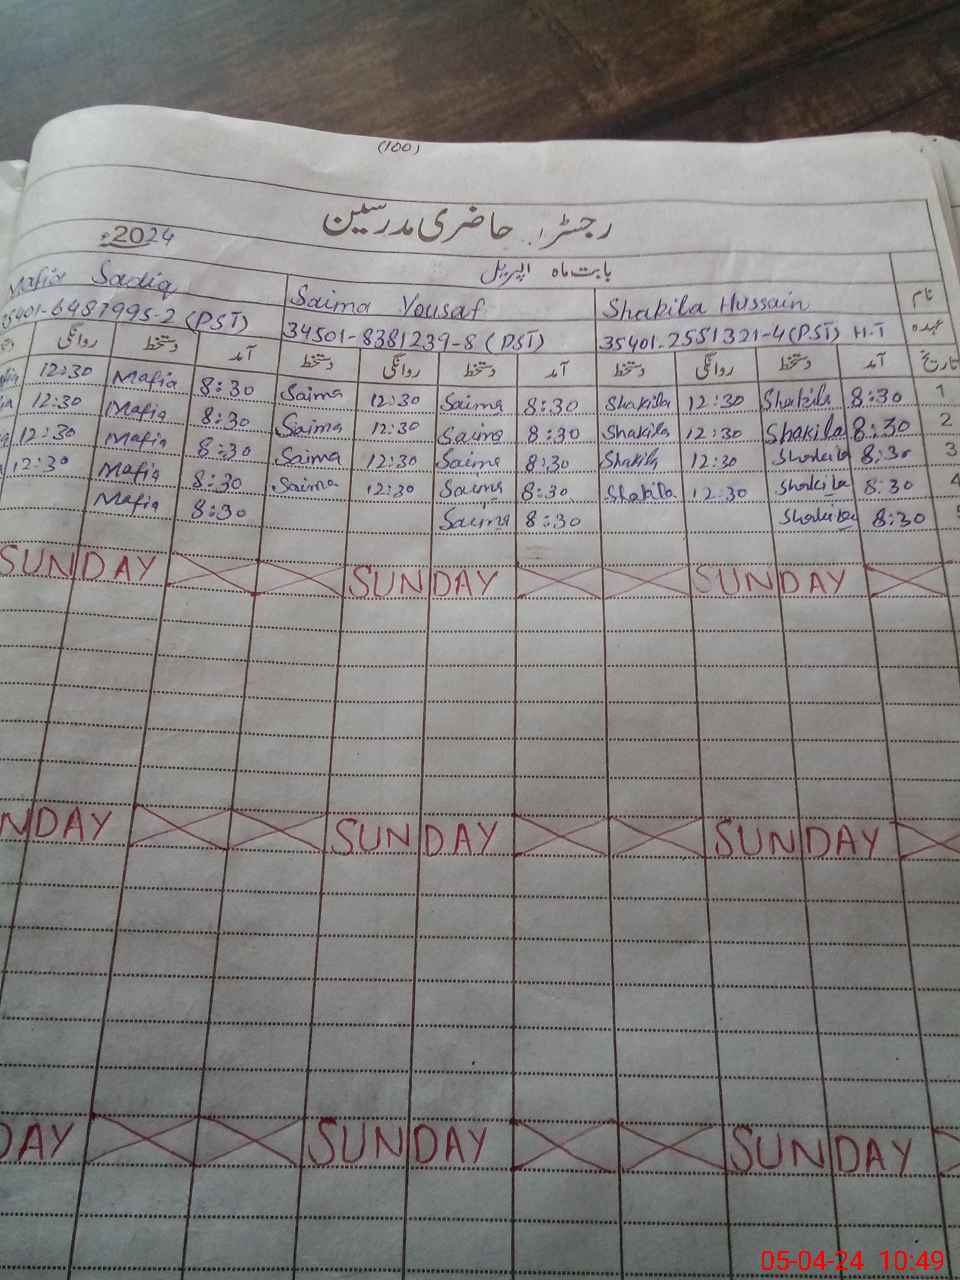 (100)
رجسٹر حاضری مدرسین
2024ء
بابت ماہ اپریل
Mafia Sadiq Saima Yousaf Shakila Hussain نام
35401-6487995-2 (PST) 34501-8381239-8 (PST) 35401-2551321-4 (PST) H.T عہدہ
روانگی دستخط آمد دستخط روانگی دستخط آمد دستخط روانگی دستخط آمد تاریخ
12:30 Mafia 8:30 Saima 12:30 Saima 8:30 Shakila 12:30 Shakila 8:30 1
12:30 Mafia 8:30 Saima 12:30 Saima 8:30 Shakila 12:30 Shakila 8:30 2
12:30 Mafia 8:30 Saima 12:30 Saima 8:30 Shakila 12:30 Shakila 8:30 3
12:30 Mafia 8:30 Saima 12:30 Saima 8:30 Shakila 12:30 Shakila 8:30 4
Mafia 8:30 Saima 8:30 Shakila 8:30 5
SUNDAY SUNDAY SUNDAY
NDAY SUNDAY SUNDAY
DAY SUNDAY SUNDAY
05-04-24 10:49